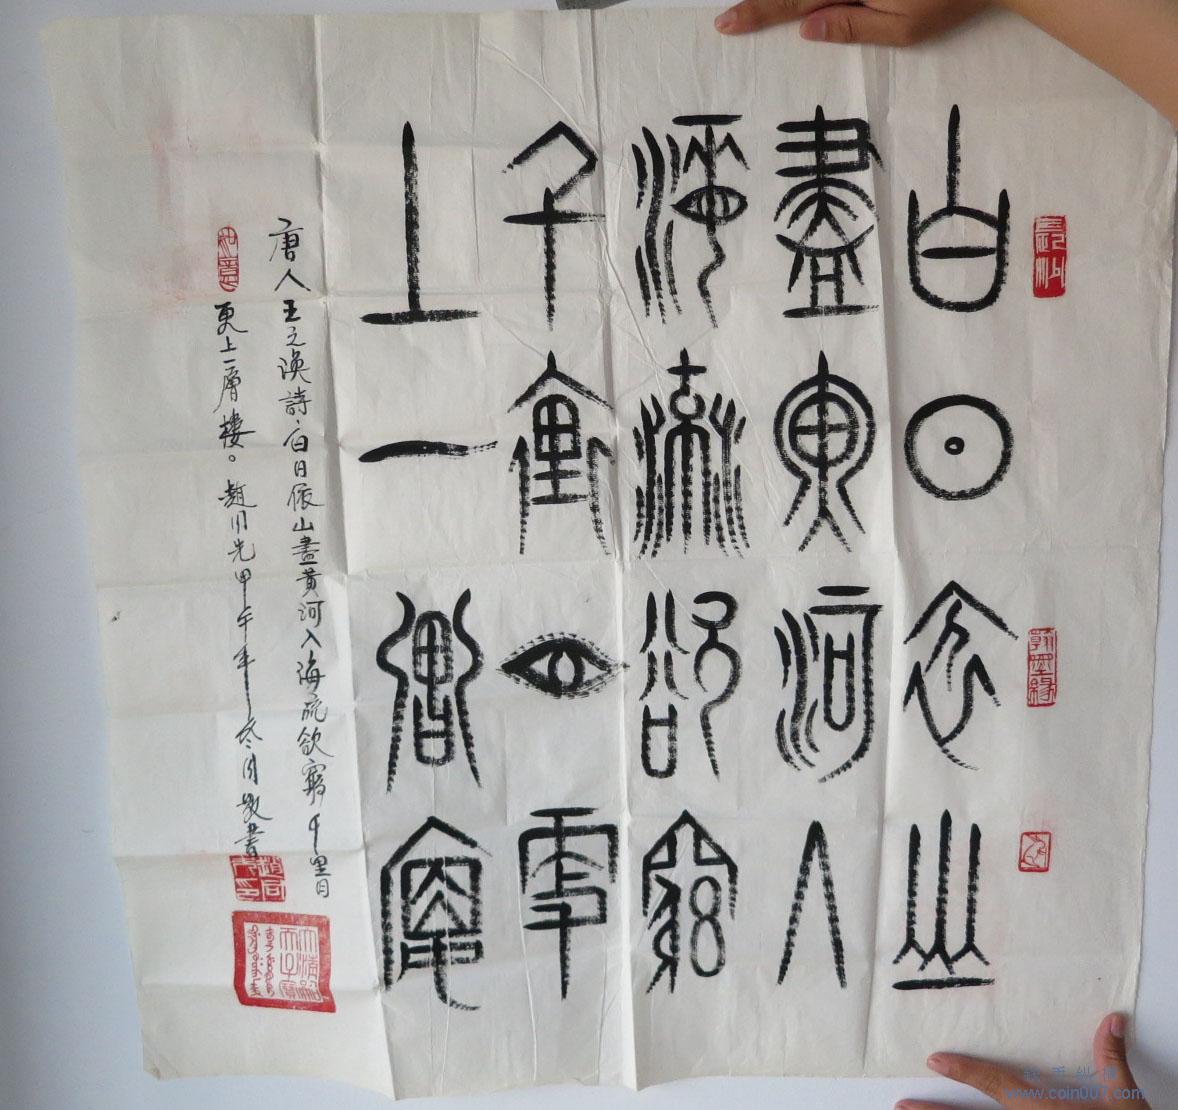 白日依山
盡黃河入
海流欲窮
千里目更
上一層樓
唐人王之渙詩白日依山盡黃河入海流欲窮千里目
如意
更上一層樓。趙同先甲午年冬月敬書
翰墨緣
大清嗣天子寶
www.coin007.com